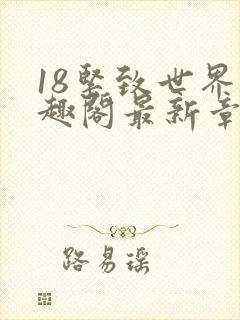 18坚致世界
趣阁最新章
路易瑶